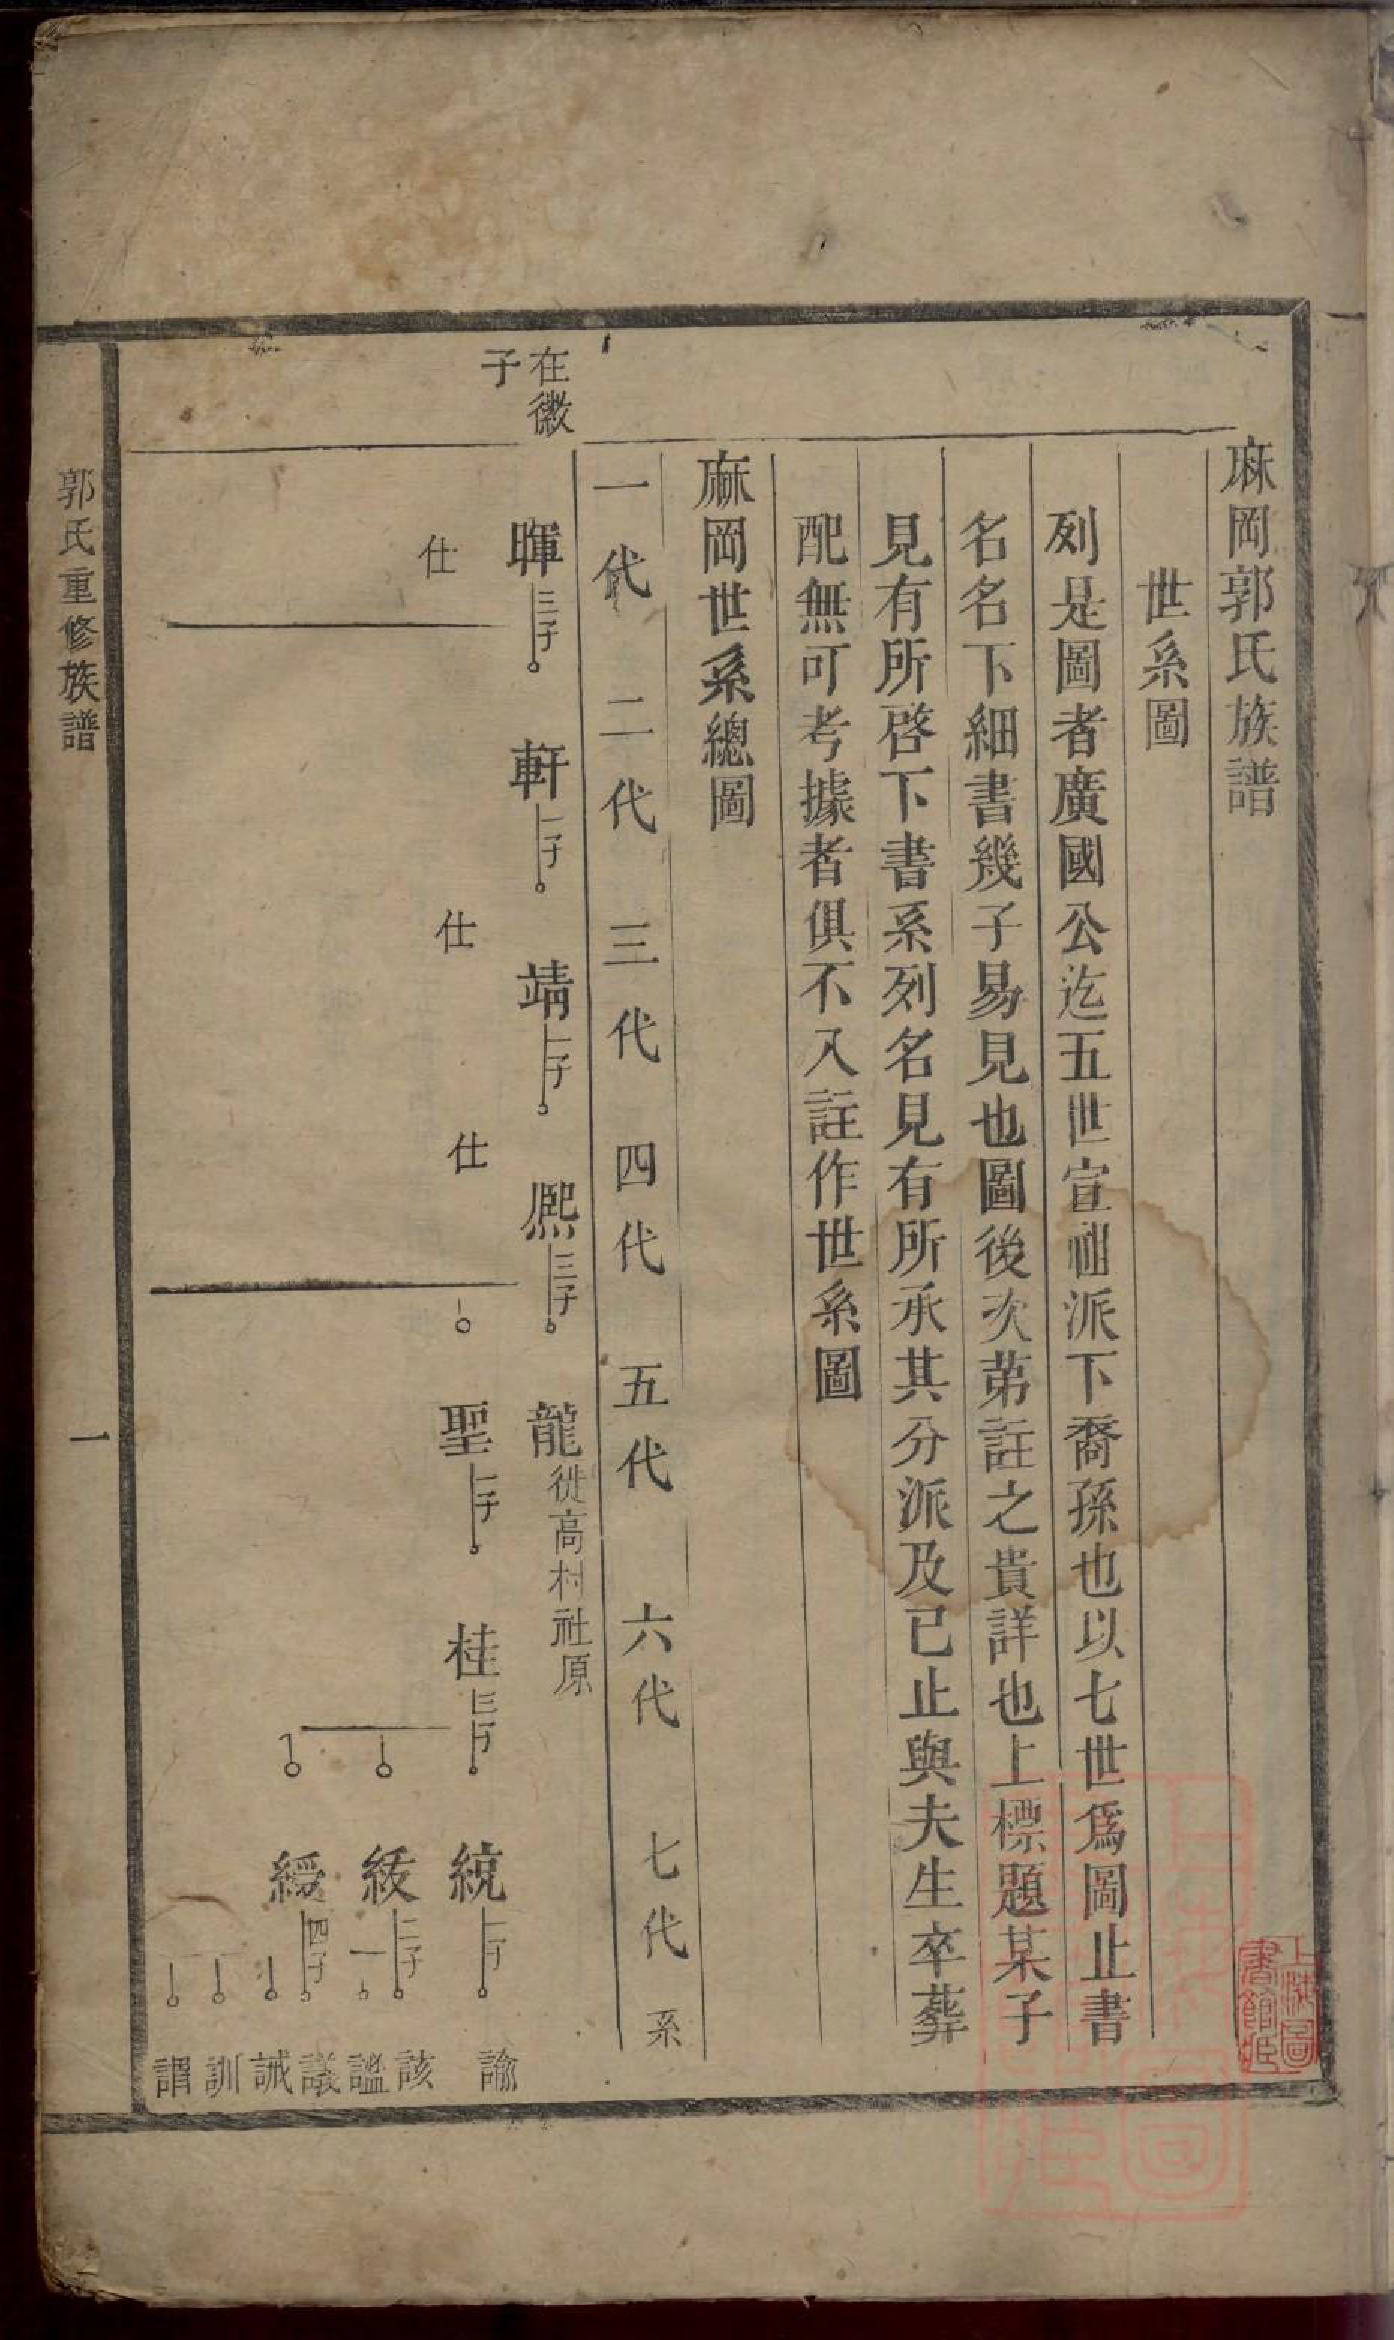 麻岡郭氏族譜
世系圖
列是圖者廣國公迄五世宣祖派下裔孫也以七世爲圖止書
名名下細書幾子易見也圖後次第註之貴詳也上標題某子
見有所啓下書系列名見有所承其分派及已止與夫生卒葬
配無可考據者俱不入註作世系圖
麻岡世系總圖
一代 二代 三代 四代 五代 六代 七代 系
在徽
子
暉 三子 軒 一子 靖 一子 熈 三子 龍 徙高村社原
仕 仕 仕 聖 一子 桂 三子 統 一子 諭
綏 二子 該 謐
綬 四子 議 誡 訓 謂
郭氏重修族譜 一
上海圖書館藏